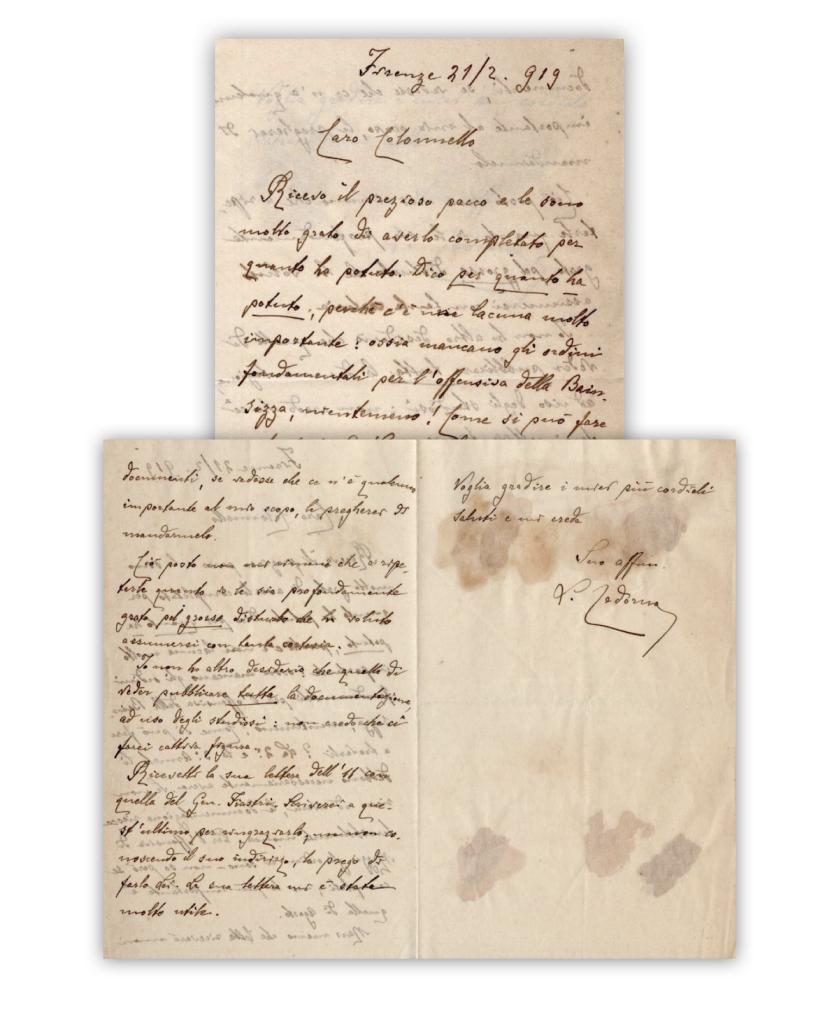 Firenze 21/2. 919
Caro Colonnello
Ricevo il prezioso pacco e le sono
molto grato di averlo completato per
quanto ha potuto. Dico per quanto ha
potuto, perchè c'è una lacuna molto
importante: ossia mancano gli ordini
fondamentali per l'offensiva della Bain-
sizza, nientemeno! Come si può fare
documenti, se vedesse che ce n'è qualcuno
importante al mio scopo, la pregherei di
mandarmelo.
Ciò posto non mi rimane che a ripe-
terle quanto io le sia profondamente
grato pel grosso disturbo che ha voluto
assumersi con tanta cortesia.
Io non ho altro desiderio che quello di
veder pubblicare tutta la documentazione,
ad uso degli studiosi: non credo che ci
farei cattiva figura.
Ricevetti la sua lettera dell'11 con
quella del Gen. Fiastri. Scriverei a que-
st'ultimo per ringraziarlo, ma non co-
noscendo il suo indirizzo, la prego di
farlo Lei. La sua lettera mi è stata
molto utile.
Voglia gradire i miei più cordiali
saluti e mi creda
Suo affmo.
L. Cadorna